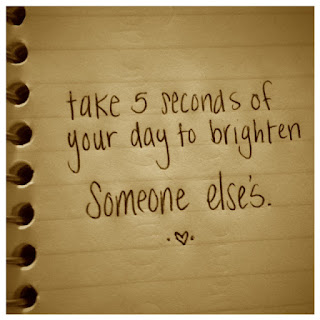 take 5 seconds of
your day to brighten
Someone else's.